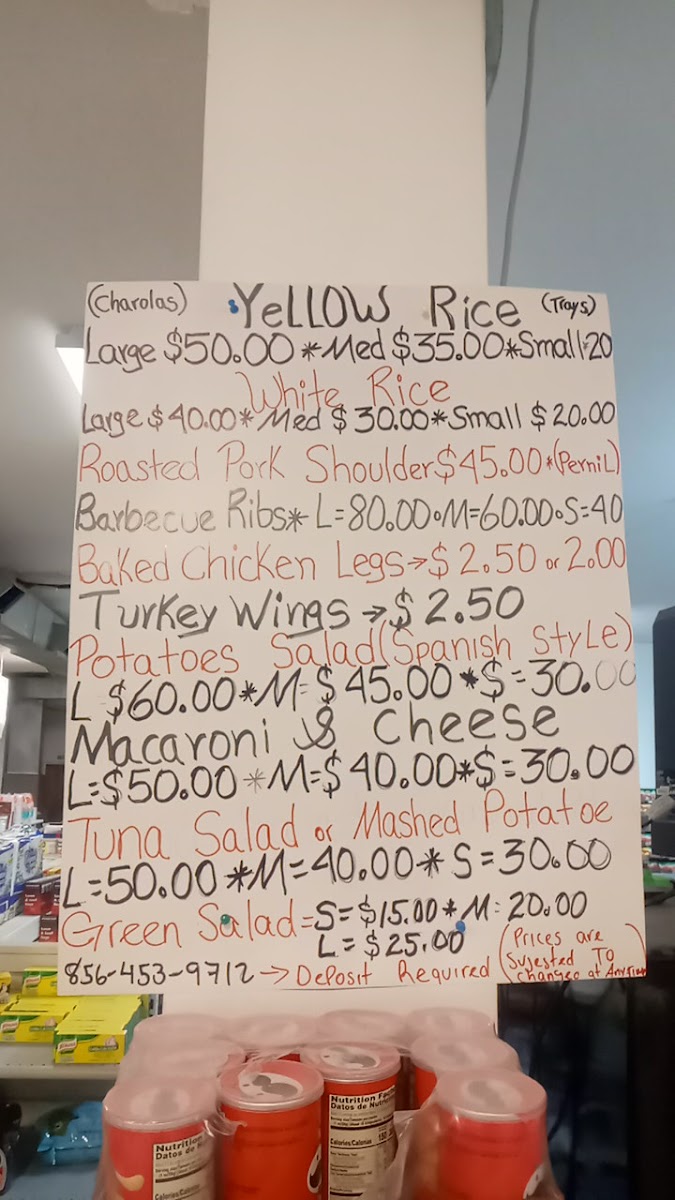 (Charolas) YeLLOW Rice (Trays)
Large $50.00 *Med $35.00*Small-20
White Rice
Large $40.00* Med $30.00*Small $20.00
Roasted Pork Shoulder $45.00*(PerniL)
Barbecue Ribs* L=80.00•M=60.00•S=40
Baked Chicken Legs→$2.50 or 2.00
Turkey Wings →$2.50
Potatoes Salad (Spanish StyLe)
L $60.00*M=$45.00 *S=30.00
Macaroni & Cheese
L=$50.00 *M=$40.00*S=30.00
Tuna Salad or Mashed Potatoe
L=50.00 *M=40.00* S=30.00
Green Salad=S=$15.00*M=20.00
L=$25.00
856-453-9712→Deposit Required
(Prices are
Sujested To
changed at Anytime
Knorr
Knorr
Nutrition Facts
Datos de Nutri
Calories/Calorías
Nutrition
Datos de N